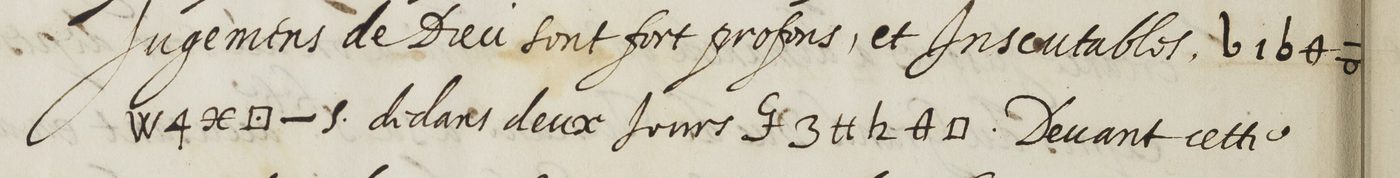 Jugemens de Dieu sont fort profons, et Inscutables. b 1 6
W 4 – s. dedans deux Jours 3 h . Devant cette